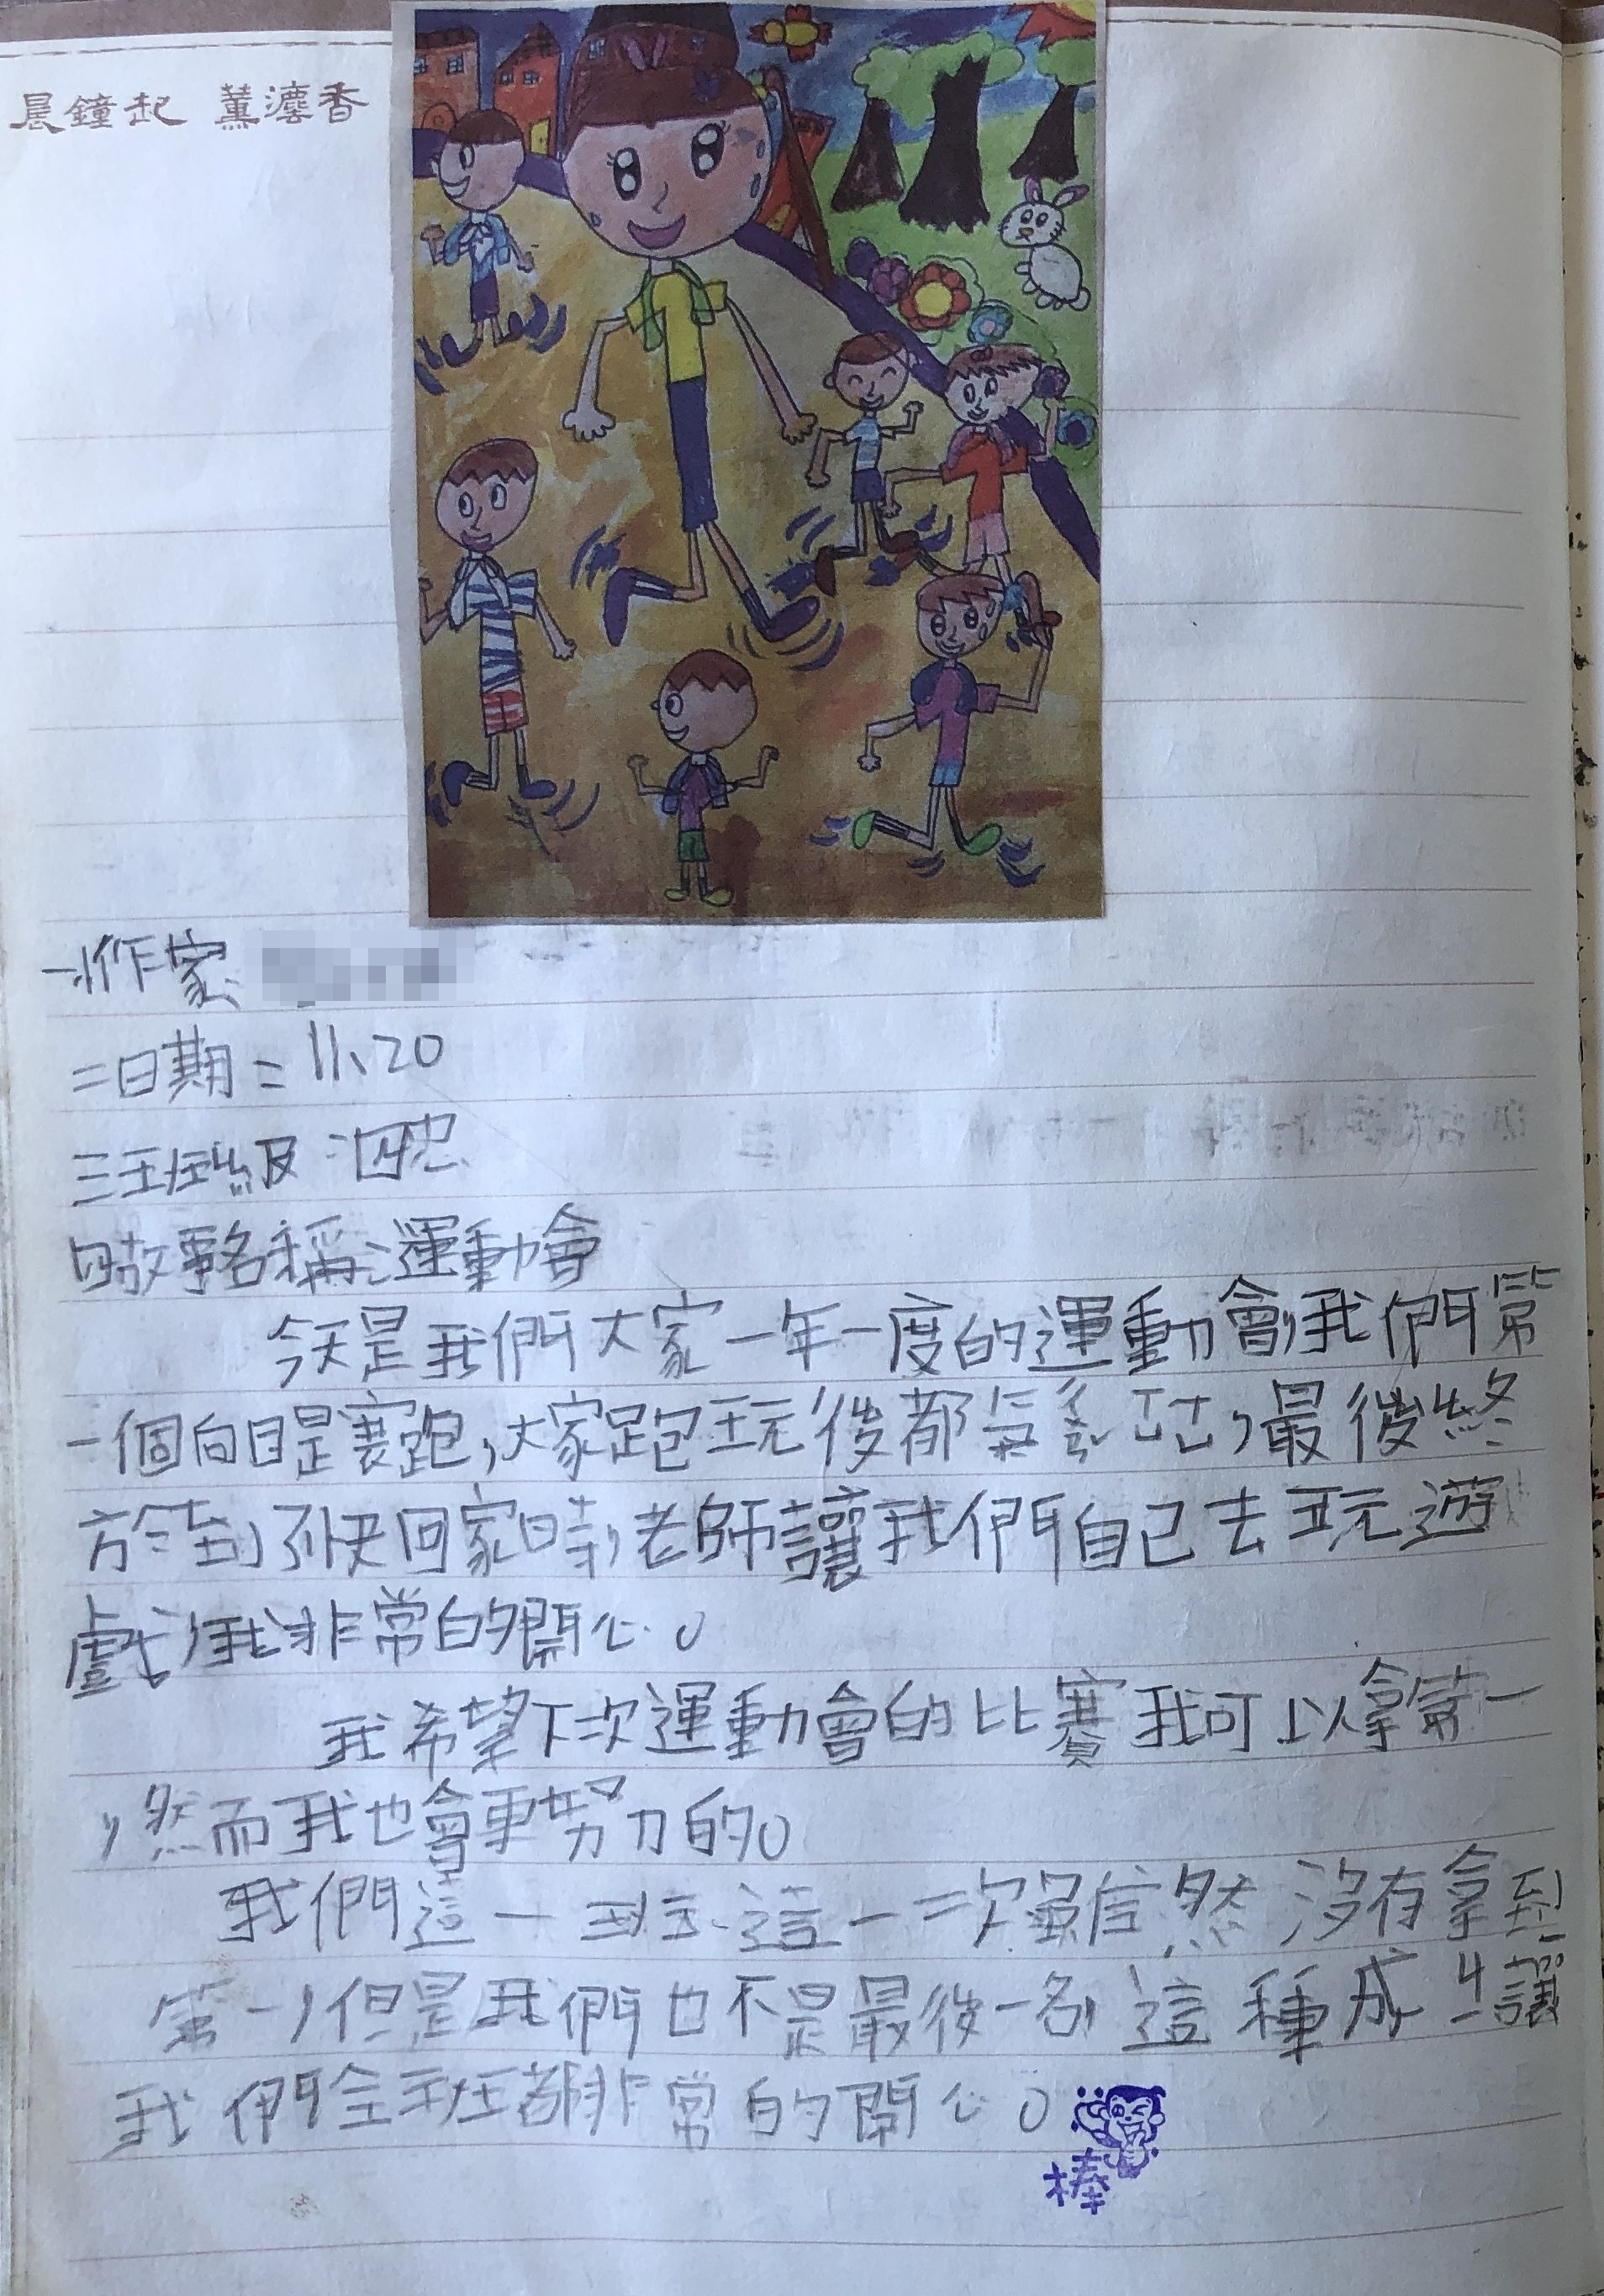 晨鐘起 薰漉香
一作家、
二日期：11、20
三班級：四忠
四故事名稱：運動會
今天是我們大家一年一度的運動會，我們第
一個向目是賽跑，大家跑玩後都氣忩吁吁，最後終
於到了快回家時，老師讓我們自己去玩遊
戲，我非常的開心。
我希望下次運動會的比賽我可以拿第一
，然而我也會更努力的。
我們這一班這一次雖然沒有拿到
第一，但是我們也不是最後一名，這種成 讓
我們全班都非常的開心。
棒